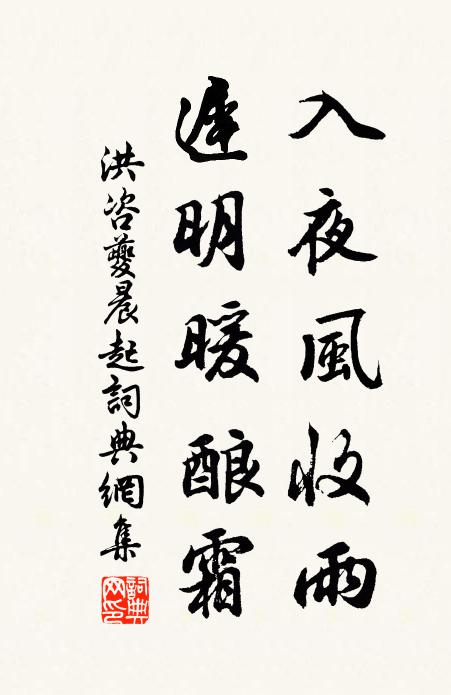 入夜風收雨
遲明暖酿霜
洪咨夔晨起詞典網集
詞典网印